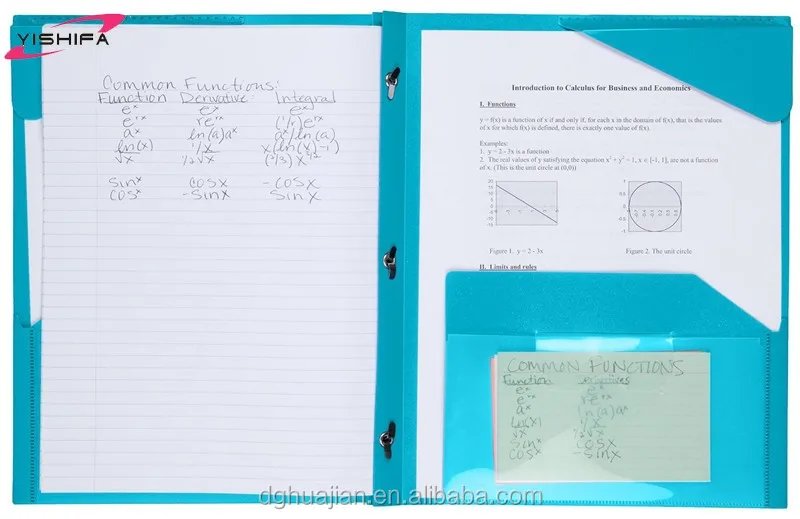 YISHIFA
Common Functions:
Function Derivative: Integral
e^x e^x e^x
e^rx re^rx (1/r)e^rx
a^x ln(a)a^x a^x/ln(a)
ln(x) 1/x x(ln(x)-1)
√x 1/2√x (2/3)x^3/2
sin^x cosx -cosx
cos^x -sinx sinx
Introduction to Calculus for Business and Economics
I. Functions
y = f(x) is a function of x if and only if, for each x in the domain of f(x), that is the values
of x for which f(x) is defined, there is exactly one value of f(x).
Examples:
1. y = 2 - 3x is a function
2. The real values of y satisfying the equation x² + y² = 1, x ∈ [-1, 1], are not a function
of x. (This is the unit circle at (0,0))
Figure 1. y = 2 - 3x
Figure 2. The unit circle.
II. Limits and rules
COMMON FUNCTIONS
Function
e^x e^x
e^rx re^rx
a^x ln(a)a^x
ln(x) 1/x
√x 1/2√x
sin^x cosx
cos^x -sinx
dghuajian.en.alibaba.com